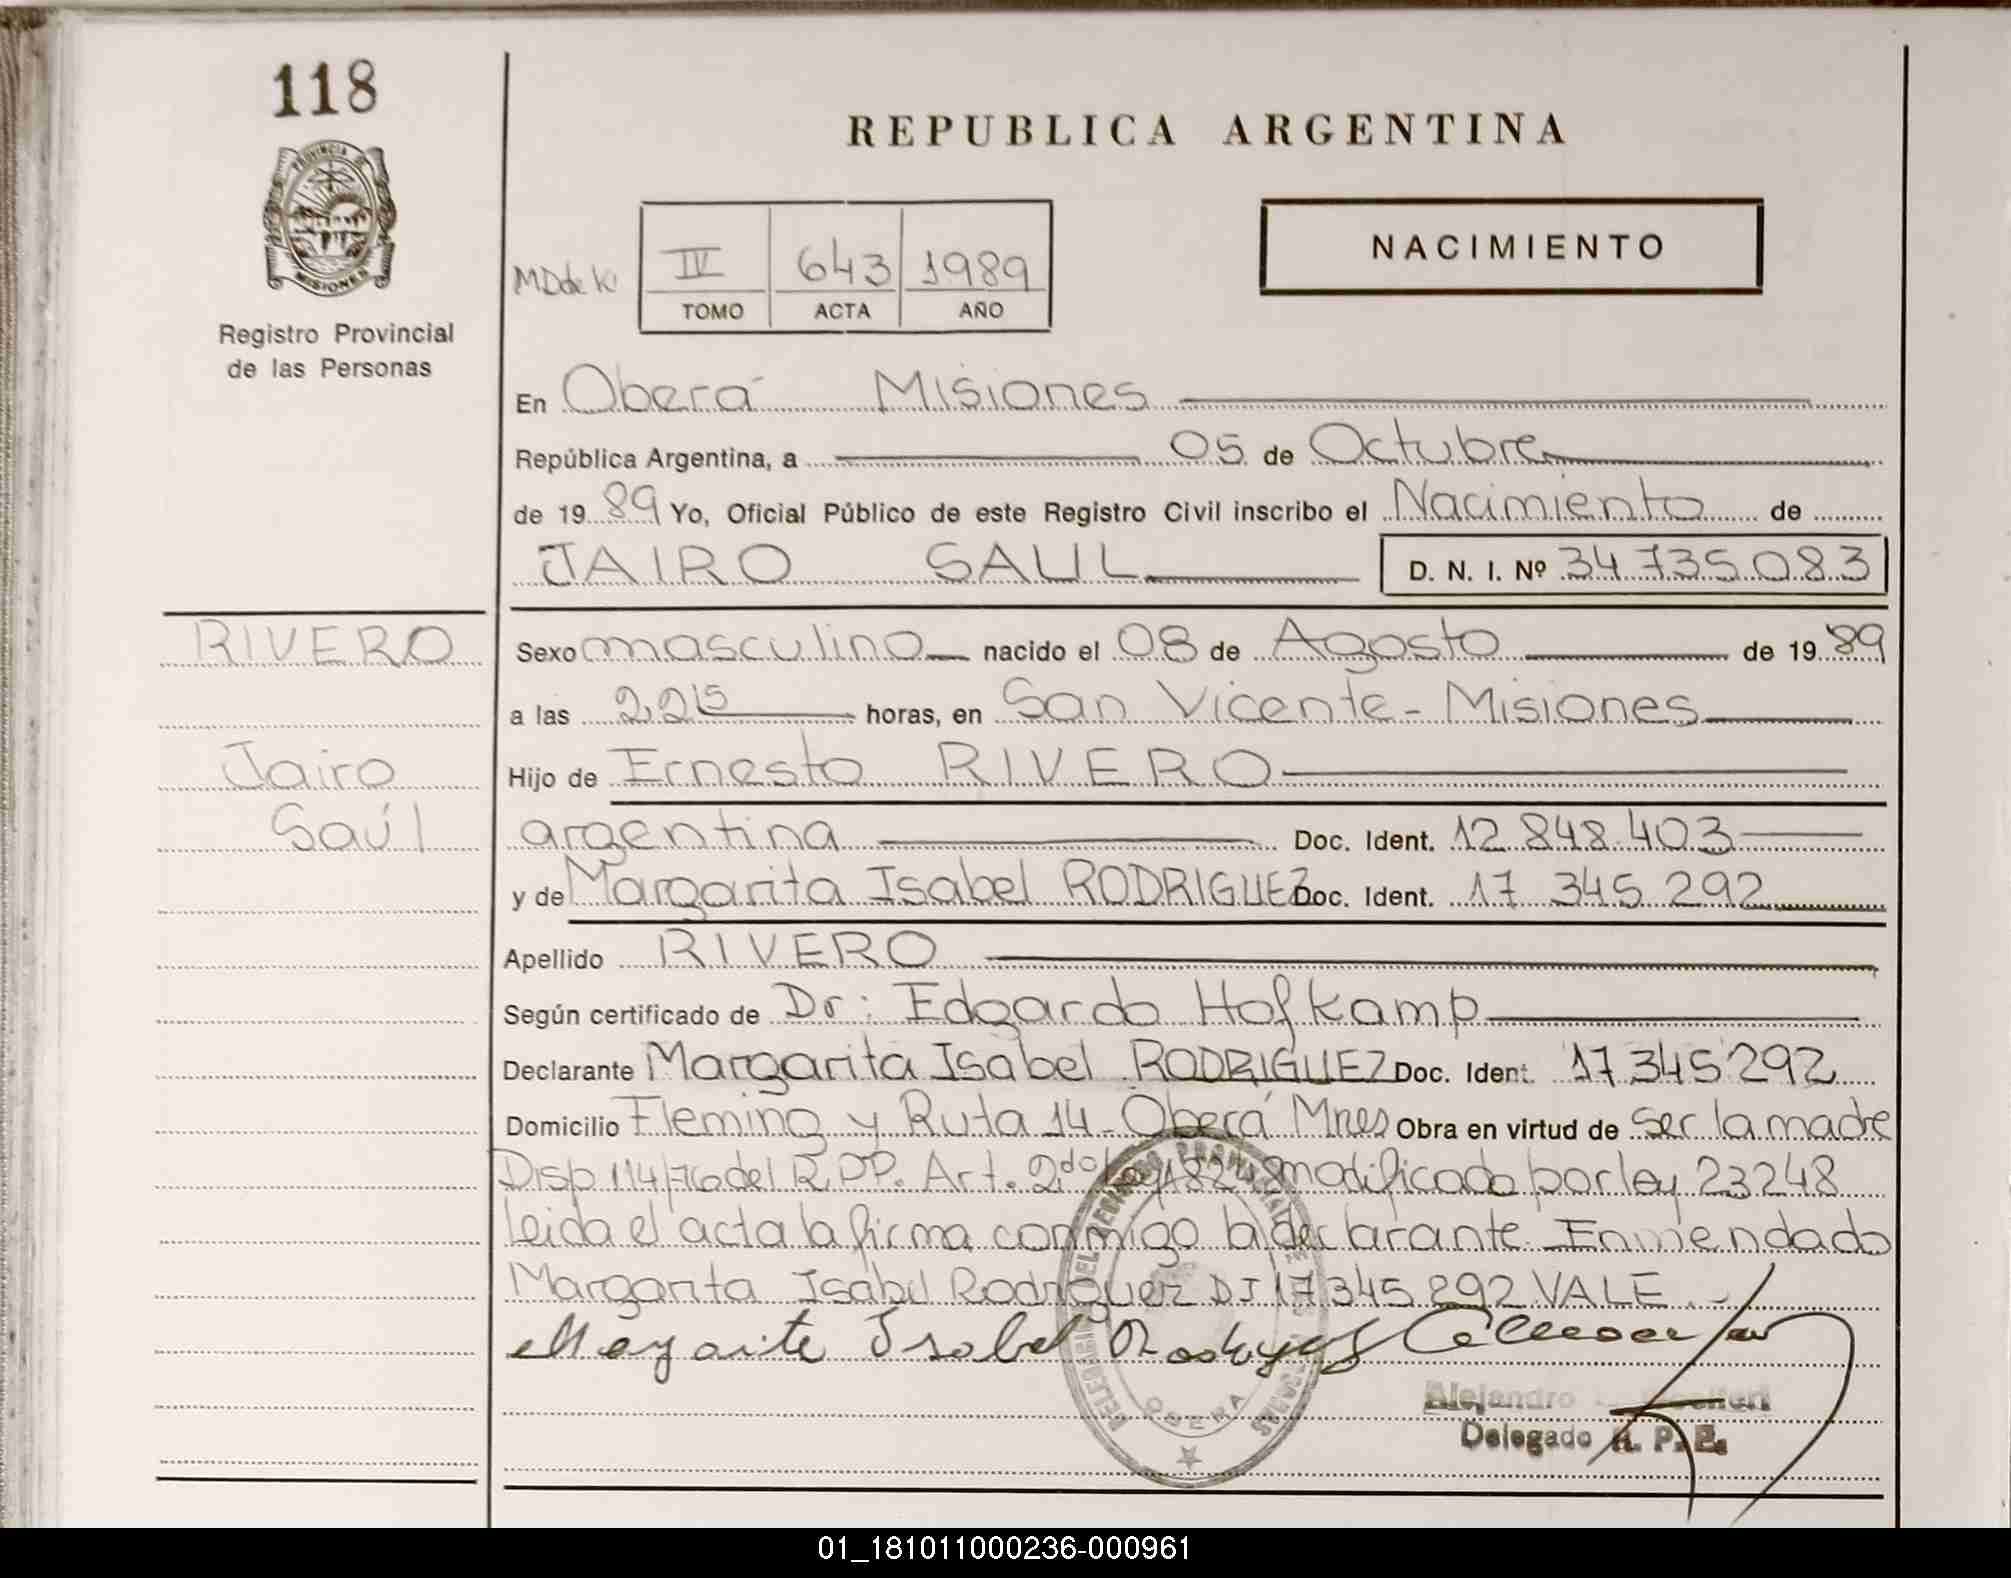 118
PROVINCIA DE
MISIONES
Registro Provincial
de las Personas
REPUBLICA ARGENTINA
NACIMIENTO
IV 643 1989
TOMO ACTA AÑO
En Oberá Misiones
República Argentina, a 05 de Octubre
de 1989 Yo, Oficial Público de este Registro Civil inscribo el Nacimiento de
JAIRO SAUL D. N. I. Nº 34.735.083
RIVERO
Jairo
Saúl
Sexo masculino nacido el 08 de Agosto de 1989
a las 22 15 horas, en San Vicente - Misiones
Hijo de Ernesto RIVERO
argentina Doc. Ident. 12.848.403
y de Margarita Isabel RODRIGUEZ Doc. Ident. 17 345 292
Apellido RIVERO
Según certificado de Dr: Edgardo Hofkamp
Declarante Margarita Isabel RODRIGUEZ Doc. Ident. 17 345 292
Domicilio Fleming y Ruta 14 - Oberá Mnes Obra en virtud de ser la madre
Disp 114/76 del R.P.P. Art. 2do modificado por ley 23248
leida el acta la firma conmigo la declarante. Enmendado
Margarita Isabel Rodriguez DI 17 345 292 VALE
Isabel
OBERA
Alejandro
Delegado
01_181011000236-000961